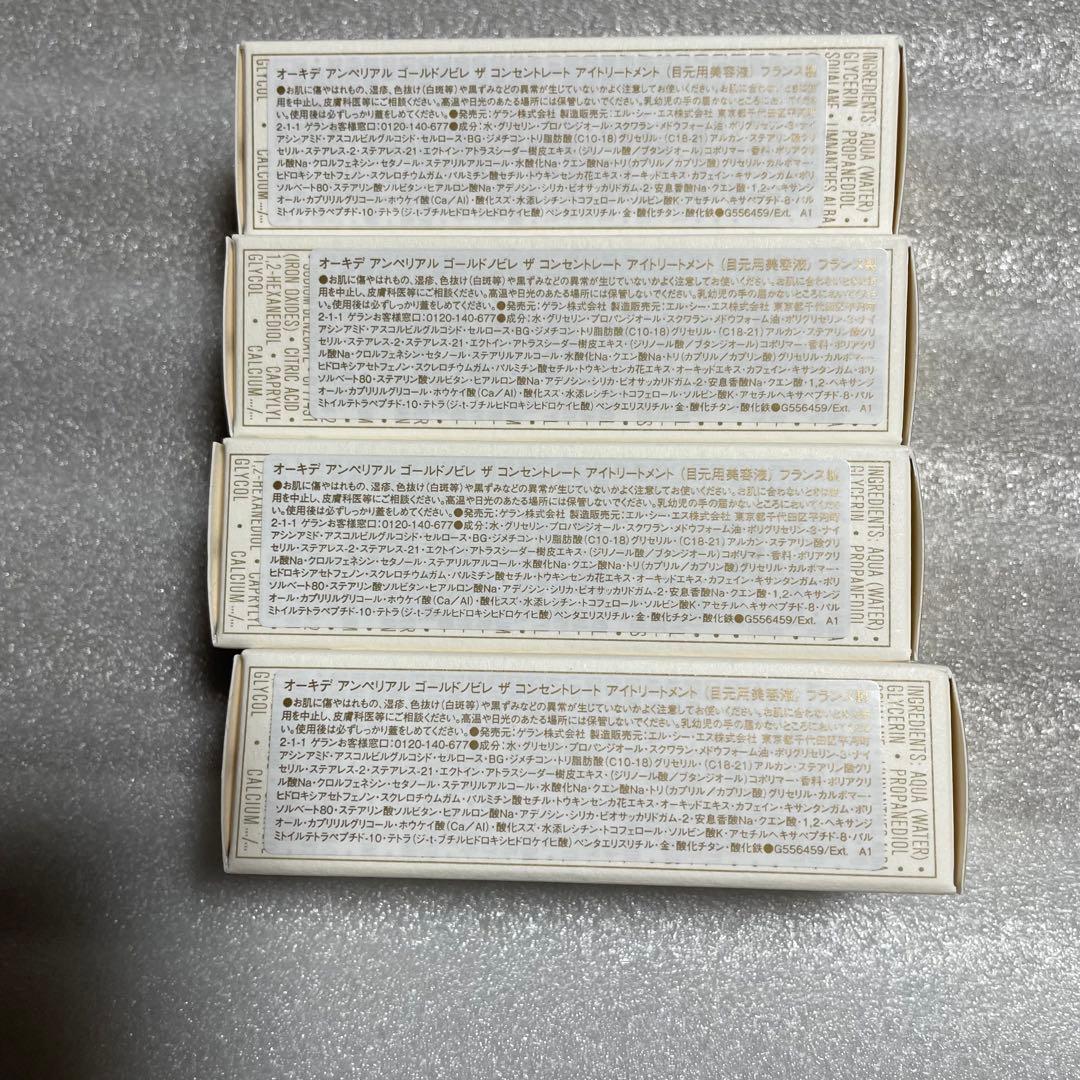 INGREDIENTS: AQUA (WATER) •
GLYCERIN • PROPANEDIOL •
SQUALANE • LIMNANTHES ALBA
GLYCOL • CALCIUM .../...
オーキデ アンペリアル ゴールドノビレ ザ コンセントレート アイトリートメント (目元用美容液) フランス製
●お肌に傷やはれもの、湿疹、色抜け(白斑等)や黒ずみなどの異常が生じていないかよく注意してお使いください。お肌に合わないときは使
用を中止し、皮膚科医等にご相談ください。高温や日光のあたる場所には保管しないでください。乳幼児の手の届かないところにおいてくださ
い。使用後は必ずしっかり蓋をしめてください。●発売元:ゲラン株式会社 製造販売元:エル・シー・エス株式会社 東京都千代田区平河町
2-1-1 ゲランお客様窓口:0120-140-677●成分:水・グリセリン・プロパンジオール・スクワラン・メドウフォーム油・ポリグリセリン-3・ナイ
アシンアミド・アスコルビルグルコシド・セルロース・BG・ジメチコン・トリ脂肪酸(C10-18)グリセリル・(C18-21)アルカン・ステアリン酸グリ
セリル・ステアレス-2・ステアレス-21・エクトイン・アトラスシーダー樹皮エキス・(ジリノール酸/ブタンジオール)コポリマー・香料・ポリアクリ
ル酸Na・クロルフェネシン・セタノール・ステアリルアルコール・水酸化Na・クエン酸Na・トリ(カプリル/カプリン酸)グリセリル・カルボマー・
ヒドロキシアセトフェノン・スクレロチウムガム・パルミチン酸セチル・トウキンセンカ花エキス・オーキッドエキス・カフェイン・キサンタンガム・ポリ
ソルベート80・ステアリン酸ソルビタン・ヒアルロン酸Na・アデノシン・シリカ・ビオサッカリドガム-2・安息香酸Na・クエン酸・1,2-ヘキサンジ
オール・カプリリルグリコール・ホウケイ酸(Ca/Al)・酸化スズ・水添レシチン・トコフェロール・ソルビン酸K・アセチルヘキサペプチド-8・パル
ミトイルテトラペプチド-10・テトラ(ジ-t-ブチルヒドロキシヒドロケイヒ酸)ペンタエリスリチル・金・酸化チタン・酸化鉄●G556459/Ext. A1
(IRON OXIDES) • CITRIC ACID •
1,2-HEXANEDIOL • CAPRYLYL
GLYCOL • CALCIUM .../...
オーキデ アンペリアル ゴールドノビレ ザ コンセントレート アイトリートメント (目元用美容液) フランス製
●お肌に傷やはれもの、湿疹、色抜け(白斑等)や黒ずみなどの異常が生じていないかよく注意してお使いください。お肌に合わないときは使
用を中止し、皮膚科医等にご相談ください。高温や日光のあたる場所には保管しないでください。乳幼児の手の届かないところにおいてくださ
い。使用後は必ずしっかり蓋をしめてください。●発売元:ゲラン株式会社 製造販売元:エル・シー・エス株式会社 東京都千代田区平河町
2-1-1 ゲランお客様窓口:0120-140-677●成分:水・グリセリン・プロパンジオール・スクワラン・メドウフォーム油・ポリグリセリン-3・ナイ
アシンアミド・アスコルビルグルコシド・セルロース・BG・ジメチコン・トリ脂肪酸(C10-18)グリセリル・(C18-21)アルカン・ステアリン酸グリ
セリル・ステアレス-2・ステアレス-21・エクトイン・アトラスシーダー樹皮エキス・(ジリノール酸/ブタンジオール)コポリマー・香料・ポリアクリ
ル酸Na・クロルフェネシン・セタノール・ステアリルアルコール・水酸化Na・クエン酸Na・トリ(カプリル/カプリン酸)グリセリル・カルボマー・
ヒドロキシアセトフェノン・スクレロチウムガム・パルミチン酸セチル・トウキンセンカ花エキス・オーキッドエキス・カフェイン・キサンタンガム・ポリ
ソルベート80・ステアリン酸ソルビタン・ヒアルロン酸Na・アデノシン・シリカ・ビオサッカリドガム-2・安息香酸Na・クエン酸・1,2-ヘキサンジ
オール・カプリリルグリコール・ホウケイ酸(Ca/Al)・酸化スズ・水添レシチン・トコフェロール・ソルビン酸K・アセチルヘキサペプチド-8・パル
ミトイルテトラペプチド-10・テトラ(ジ-t-ブチルヒドロキシヒドロケイヒ酸)ペンタエリスリチル・金・酸化チタン・酸化鉄●G556459/Ext. A1
INGREDIENTS: AQUA (WATER) •
GLYCERIN • PROPANEDIOL
1,2-HEXANEDIOL • CAPRYLYL
GLYCOL • CALCIUM .../...
オーキデ アンペリアル ゴールドノビレ ザ コンセントレート アイトリートメント (目元用美容液) フランス製
●お肌に傷やはれもの、湿疹、色抜け(白斑等)や黒ずみなどの異常が生じていないかよく注意してお使いください。お肌に合わないときは使
用を中止し、皮膚科医等にご相談ください。高温や日光のあたる場所には保管しないでください。乳幼児の手の届かないところにおいてくださ
い。使用後は必ずしっかり蓋をしめてください。●発売元:ゲラン株式会社 製造販売元:エル・シー・エス株式会社 東京都千代田区平河町
2-1-1 ゲランお客様窓口:0120-140-677●成分:水・グリセリン・プロパンジオール・スクワラン・メドウフォーム油・ポリグリセリン-3・ナイ
アシンアミド・アスコルビルグルコシド・セルロース・BG・ジメチコン・トリ脂肪酸(C10-18)グリセリル・(C18-21)アルカン・ステアリン酸グリ
セリル・ステアレス-2・ステアレス-21・エクトイン・アトラスシーダー樹皮エキス・(ジリノール酸/ブタンジオール)コポリマー・香料・ポリアクリ
ル酸Na・クロルフェネシン・セタノール・ステアリルアルコール・水酸化Na・クエン酸Na・トリ(カプリル/カプリン酸)グリセリル・カルボマー・
ヒドロキシアセトフェノン・スクレロチウムガム・パルミチン酸セチル・トウキンセンカ花エキス・オーキッドエキス・カフェイン・キサンタンガム・ポリ
ソルベート80・ステアリン酸ソルビタン・ヒアルロン酸Na・アデノシン・シリカ・ビオサッカリドガム-2・安息香酸Na・クエン酸・1,2-ヘキサンジ
オール・カプリリルグリコール・ホウケイ酸(Ca/Al)・酸化スズ・水添レシチン・トコフェロール・ソルビン酸K・アセチルヘキサペプチド-8・パル
ミトイルテトラペプチド-10・テトラ(ジ-t-ブチルヒドロキシヒドロケイヒ酸)ペンタエリスリチル・金・酸化チタン・酸化鉄●G556459/Ext. A1
INGREDIENTS: AQUA (WATER) •
GLYCERIN • PROPANEDIOL
GLYCOL • CALCIUM .../...
オーキデ アンペリアル ゴールドノビレ ザ コンセントレート アイトリートメント (目元用美容液) フランス製
●お肌に傷やはれもの、湿疹、色抜け(白斑等)や黒ずみなどの異常が生じていないかよく注意してお使いください。お肌に合わないときは使
用を中止し、皮膚科医等にご相談ください。高温や日光のあたる場所には保管しないでください。乳幼児の手の届かないところにおいてくださ
い。使用後は必ずしっかり蓋をしめてください。●発売元:ゲラン株式会社 製造販売元:エル・シー・エス株式会社 東京都千代田区平河町
2-1-1 ゲランお客様窓口:0120-140-677●成分:水・グリセリン・プロパンジオール・スクワラン・メドウフォーム油・ポリグリセリン-3・ナイ
アシンアミド・アスコルビルグルコシド・セルロース・BG・ジメチコン・トリ脂肪酸(C10-18)グリセリル・(C18-21)アルカン・ステアリン酸グリ
セリル・ステアレス-2・ステアレス-21・エクトイン・アトラスシーダー樹皮エキス・(ジリノール酸/ブタンジオール)コポリマー・香料・ポリアクリ
ル酸Na・クロルフェネシン・セタノール・ステアリルアルコール・水酸化Na・クエン酸Na・トリ(カプリル/カプリン酸)グリセリル・カルボマー・
ヒドロキシアセトフェノン・スクレロチウムガム・パルミチン酸セチル・トウキンセンカ花エキス・オーキッドエキス・カフェイン・キサンタンガム・ポリ
ソルベート80・ステアリン酸ソルビタン・ヒアルロン酸Na・アデノシン・シリカ・ビオサッカリドガム-2・安息香酸Na・クエン酸・1,2-ヘキサンジ
オール・カプリリルグリコール・ホウケイ酸(Ca/Al)・酸化スズ・水添レシチン・トコフェロール・ソルビン酸K・アセチルヘキサペプチド-8・パル
ミトイルテトラペプチド-10・テトラ(ジ-t-ブチルヒドロキシヒドロケイヒ酸)ペンタエリスリチル・金・酸化チタン・酸化鉄●G556459/Ext. A1